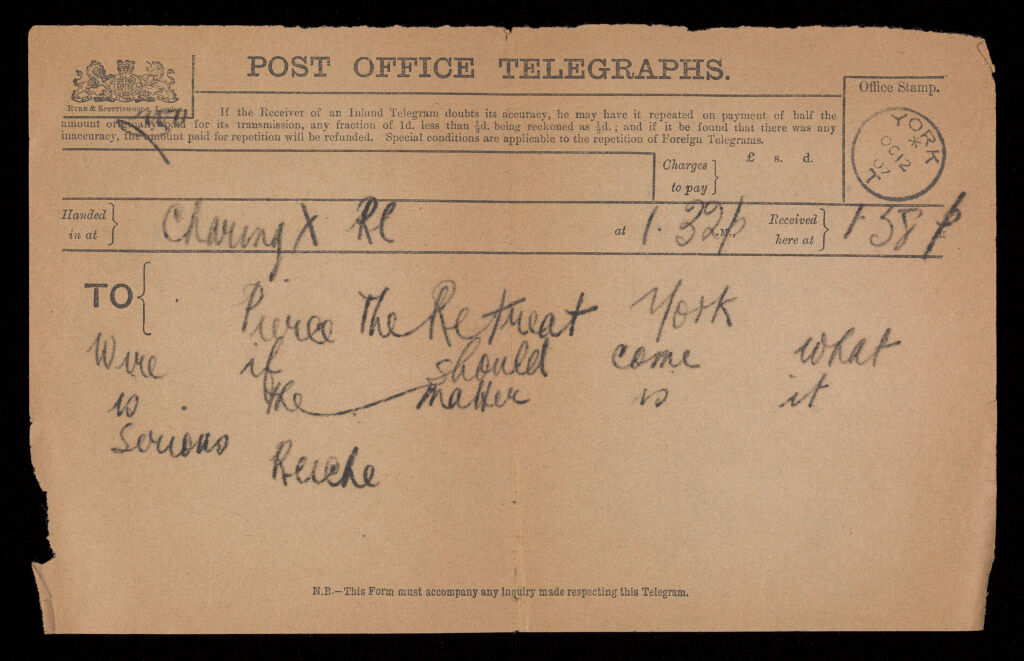 POST OFFICE TELEGRAPHS.
EYRE & SPOTTISWOODE, London
Office Stamp.
If the Receiver of an Inland Telegram doubts its accuracy, he may have it repeated on payment of half the
amount originally paid for its transmission, any fraction of 1d. less than ½d. being reckoned as ½d.; and if it be found that there was any
inaccuracy, the amount paid for repetition will be refunded. Special conditions are applicable to the repetition of Foreign Telegrams.
YORK
OC 12
07
Charges to pay } £ s. d.
Handed in at } Charing X RC at 1.32 p M., Received here at } 1.58 p
TO { Pierce The Retreat York
Wire if should come what
is the matter is it
Serious
Reiche
N.B.—This Form must accompany any inquiry made respecting this Telegram.